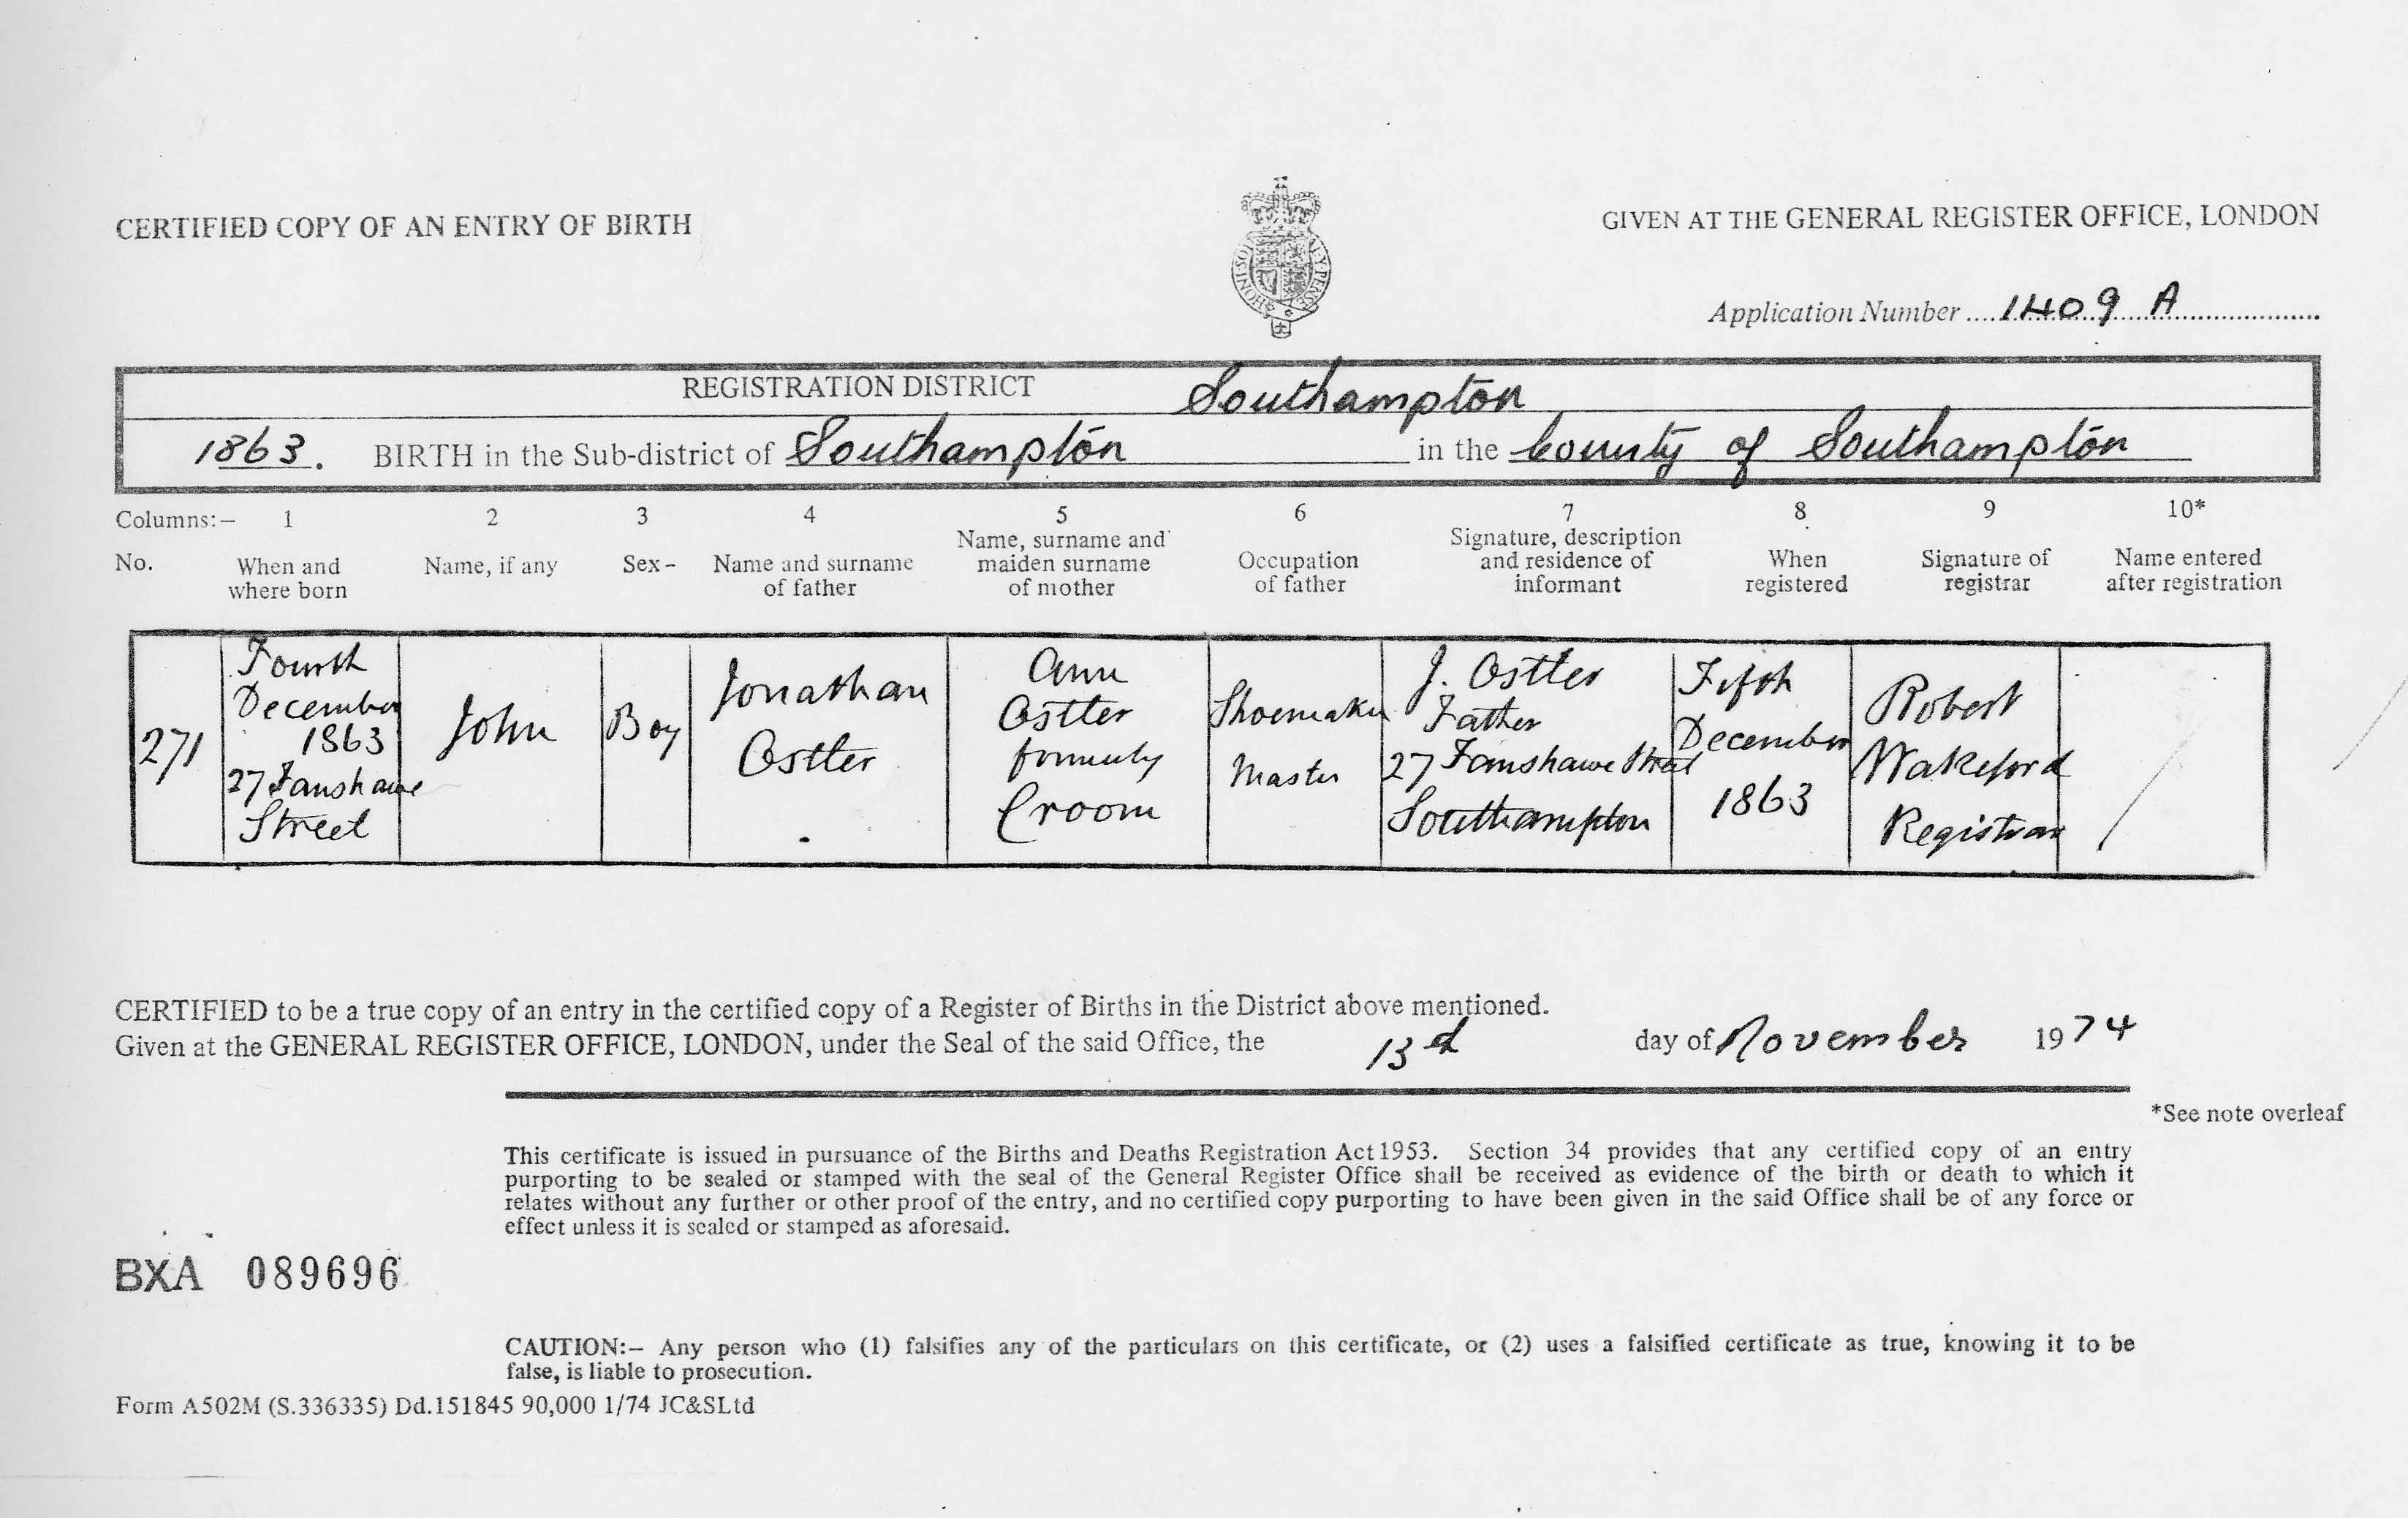 CERTIFIED COPY OF AN ENTRY OF BIRTH
GIVEN AT THE GENERAL REGISTER OFFICE, LONDON
Application Number 1409 A
REGISTRATION DISTRICT Southampton
1863. BIRTH in the Sub-district of Southampton in the County of Southampton
Columns:– 1 2 3 4 5 6 7 8 9 10*
No.
When and
where born
Name, if any
Sex –
Name and surname
of father
Name, surname and
maiden surname
of mother
Occupation
of father
Signature, description
and residence of
informant
When
registered
Signature of
registrar
Name entered
after registration
271
Fourth
December
1863
27 Fanshawe
Street
John
Boy
Jonathan
Ostler
Ann
Ostler
formerly
Croom
Shoemaker
Master
J. Ostler
Father
27 Fanshawe Street
Southampton
Fifth
December
1863
Robert
Wakeford
Registrar
CERTIFIED to be a true copy of an entry in the certified copy of a Register of Births in the District above mentioned.
Given at the GENERAL REGISTER OFFICE, LONDON, under the Seal of the said Office, the 13th day of November 1974
*See note overleaf
This certificate is issued in pursuance of the Births and Deaths Registration Act 1953. Section 34 provides that any certified copy of an entry
purporting to be sealed or stamped with the seal of the General Register Office shall be received as evidence of the birth or death to which it
relates without any further or other proof of the entry, and no certified copy purporting to have been given in the said Office shall be of any force or
effect unless it is sealed or stamped as aforesaid.
BXA 089696
CAUTION:– Any person who (1) falsifies any of the particulars on this certificate, or (2) uses a falsified certificate as true, knowing it to be
false, is liable to prosecution.
Form A502M (S.336335) Dd.151845 90,000 1/74 JC&SLtd